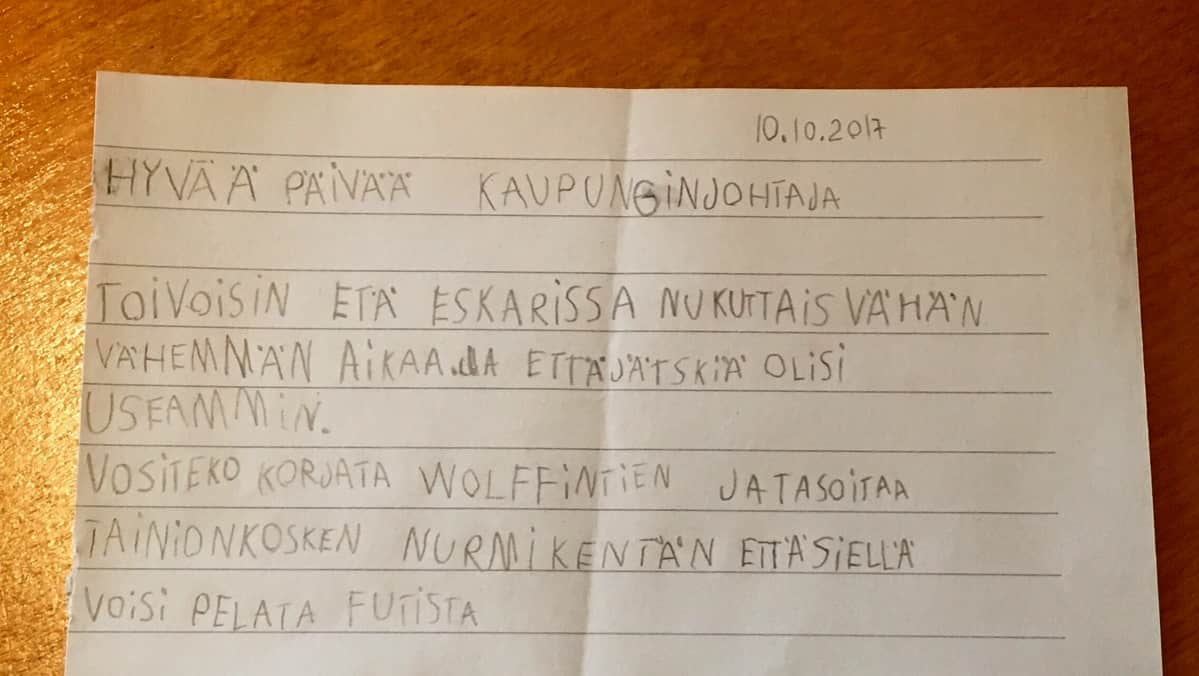 10.10.2017
HYVÄÄ PÄIVÄÄ KAUPUNGINJOHTAJA
TOIVOISIN ETÄ ESKARISSA NUKUTTAIS VÄHÄN
VÄHEMMÄN AIKAA.JA ETTÄJÄTSKIÄ OLISI
USEAMMIN.
VOSITEKO KORJATA WOLFFINTIEN JATASOITAA
TAINIONKOSKEN NURMIKENTÄN ETTÄSIELLÄ
VOISI PELATA FUTISTA